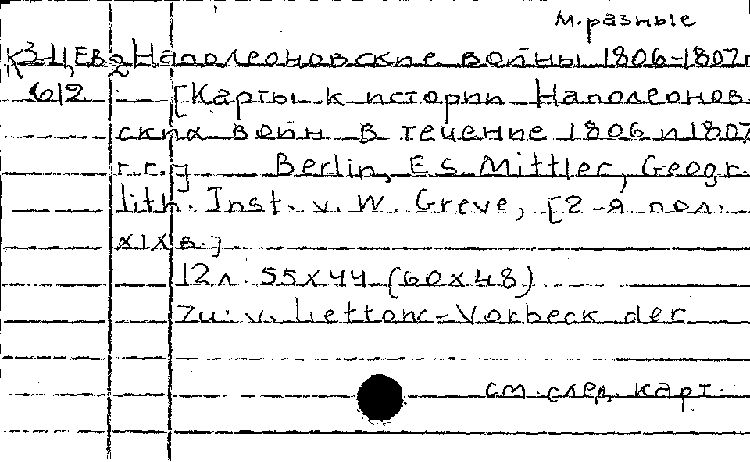 М. разные
К 3-Ц,ЕВ 2 Наполеоновские войны 1806-1807г
6/2 [Карты к истории Наполеонов-
ских войн в течение 1806 и 1807
г.г.] Berlin, E.S. Mittler, Geogr.
lith. Inst. v. W. Greve, [2-я пол.
XIX в.]
12 л. 55x44 (60x48)
Zu: v. Lettow-Vorbeck der
см. след. карт.